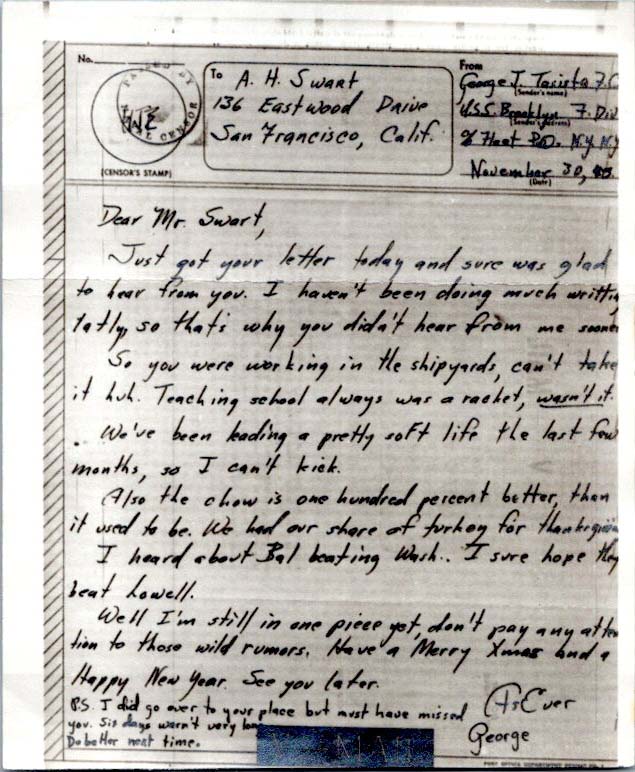 No.
PASSED BY
NAVAL CENSOR
(CENSOR'S STAMP)
To A. H. Swart
136 Eastwood Drive
San Francisco, Calif.
From
George J. F.C
(Sender's name)
U.S.S. Brooklyn F. Div
(Sender's address)
% Fleet P.O. N.Y. N.Y
November 30,
(Date)
Dear Mr. Swart,
Just got your letter today and sure was glad
to hear from you. I haven't been doing much writing
latly, so that's why you didn't hear from me sooner
So you were working in the shipyards, can't take
it huh. Teaching school always was a racket, wasn't it.
We've been leading a pretty soft life the last few
months, so I can't kick.
Also the chow is one hundred percent better, than
it used to be. We had our share of turkey for thanksgiving
I heard about Bal beating Wash.. I sure hope they
beat Lowell.
Well I'm still in one piece yet, don't pay any atten
tion to those wild rumors. Have a Merry Xmas and a
Happy New Year. See you later.
P.S. I did go over to your place but must have missed
you. Six days wasn't very
Do better next time.
As Ever
George
V - MAIL